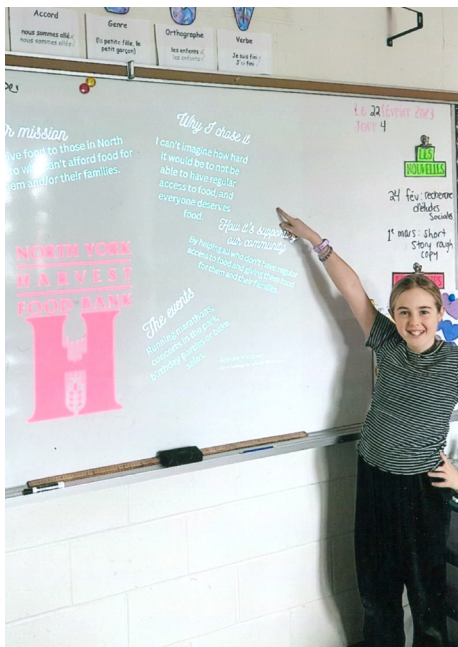 Accord
nous sommes allé
nous sommes allé
Genre
petite fille, le
petit garçon)
Orthographe
les enfants
les enfants
Verbe
Je suis fini
J'ai fini
r mission
ive food to those in North
can't afford food for
em and/or their families.
NORTH YORK
HARVEST
FOOD BANK
H
Why I chose it
I can't imagine how hard
it would be to not be
able to have regular
access to food, and
everyone deserves
food.
How it's supporting
our community
By helping all who don't have regular
access to food and giving them food
for them and their families.
The events
Running marathons,
concerts in the park,
birthday parties or bake
sales.
Le 22 février 2023
Jour 4
LES
NOUVELLES
24 fév: recherche
d'études
sociales
1er mars: short
story rough
copy